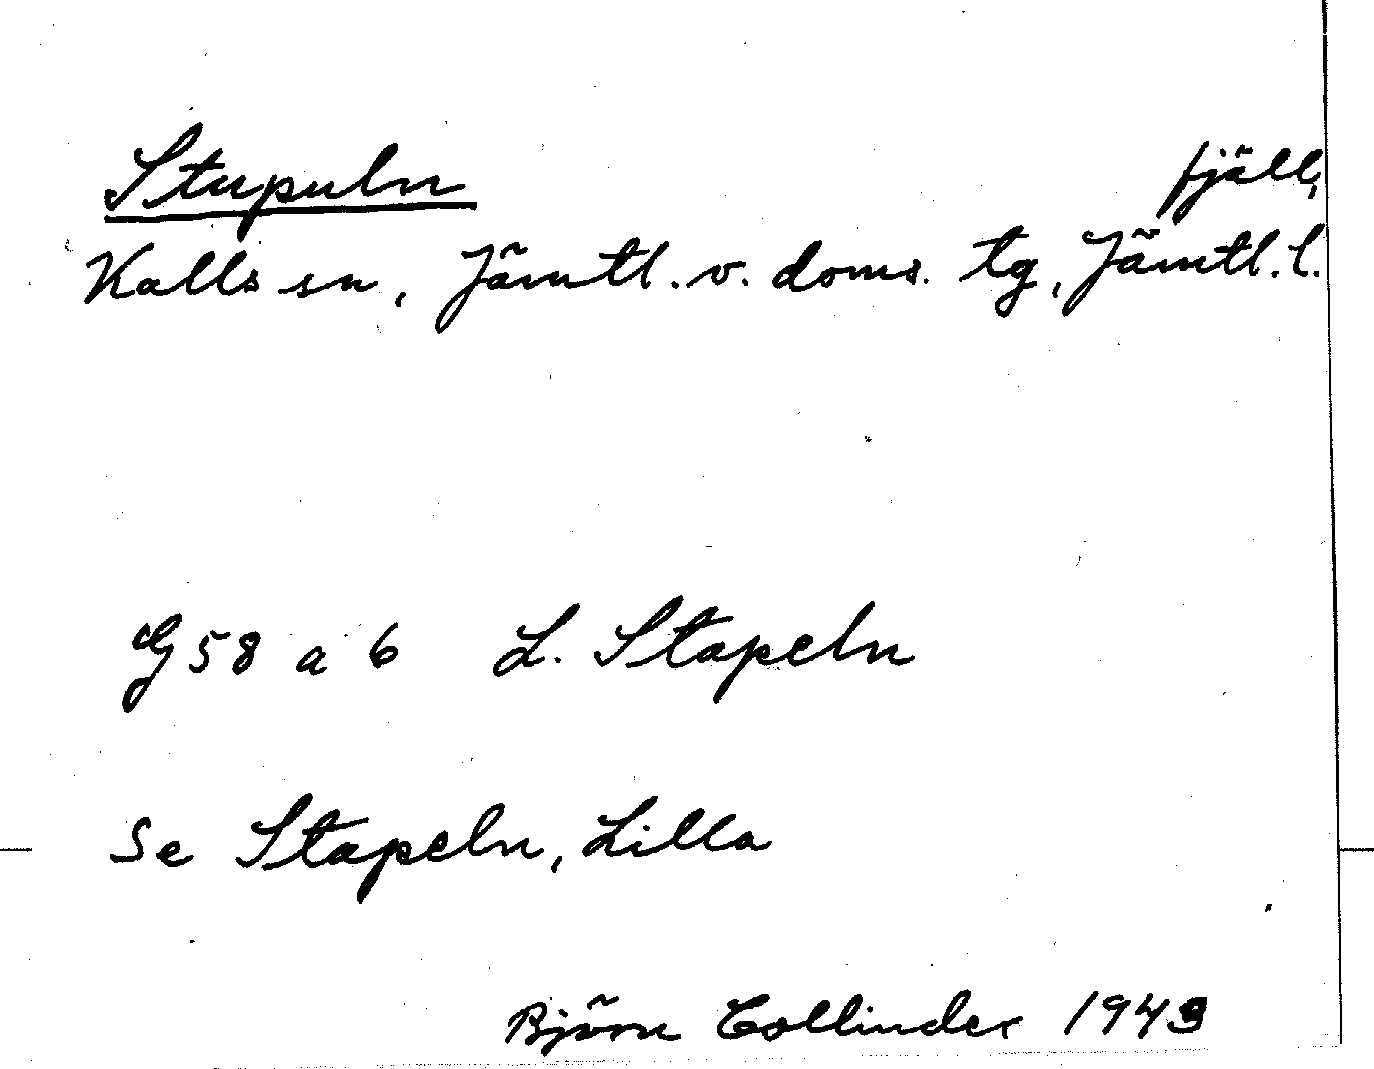 Stupuln fjäll,
Kalls sn, Jämtl. v. doms. tg, Jämtl. l.
G 58 a 6 L. Stapeln
Se Stapeln, Lilla
Björn Collinder 1943